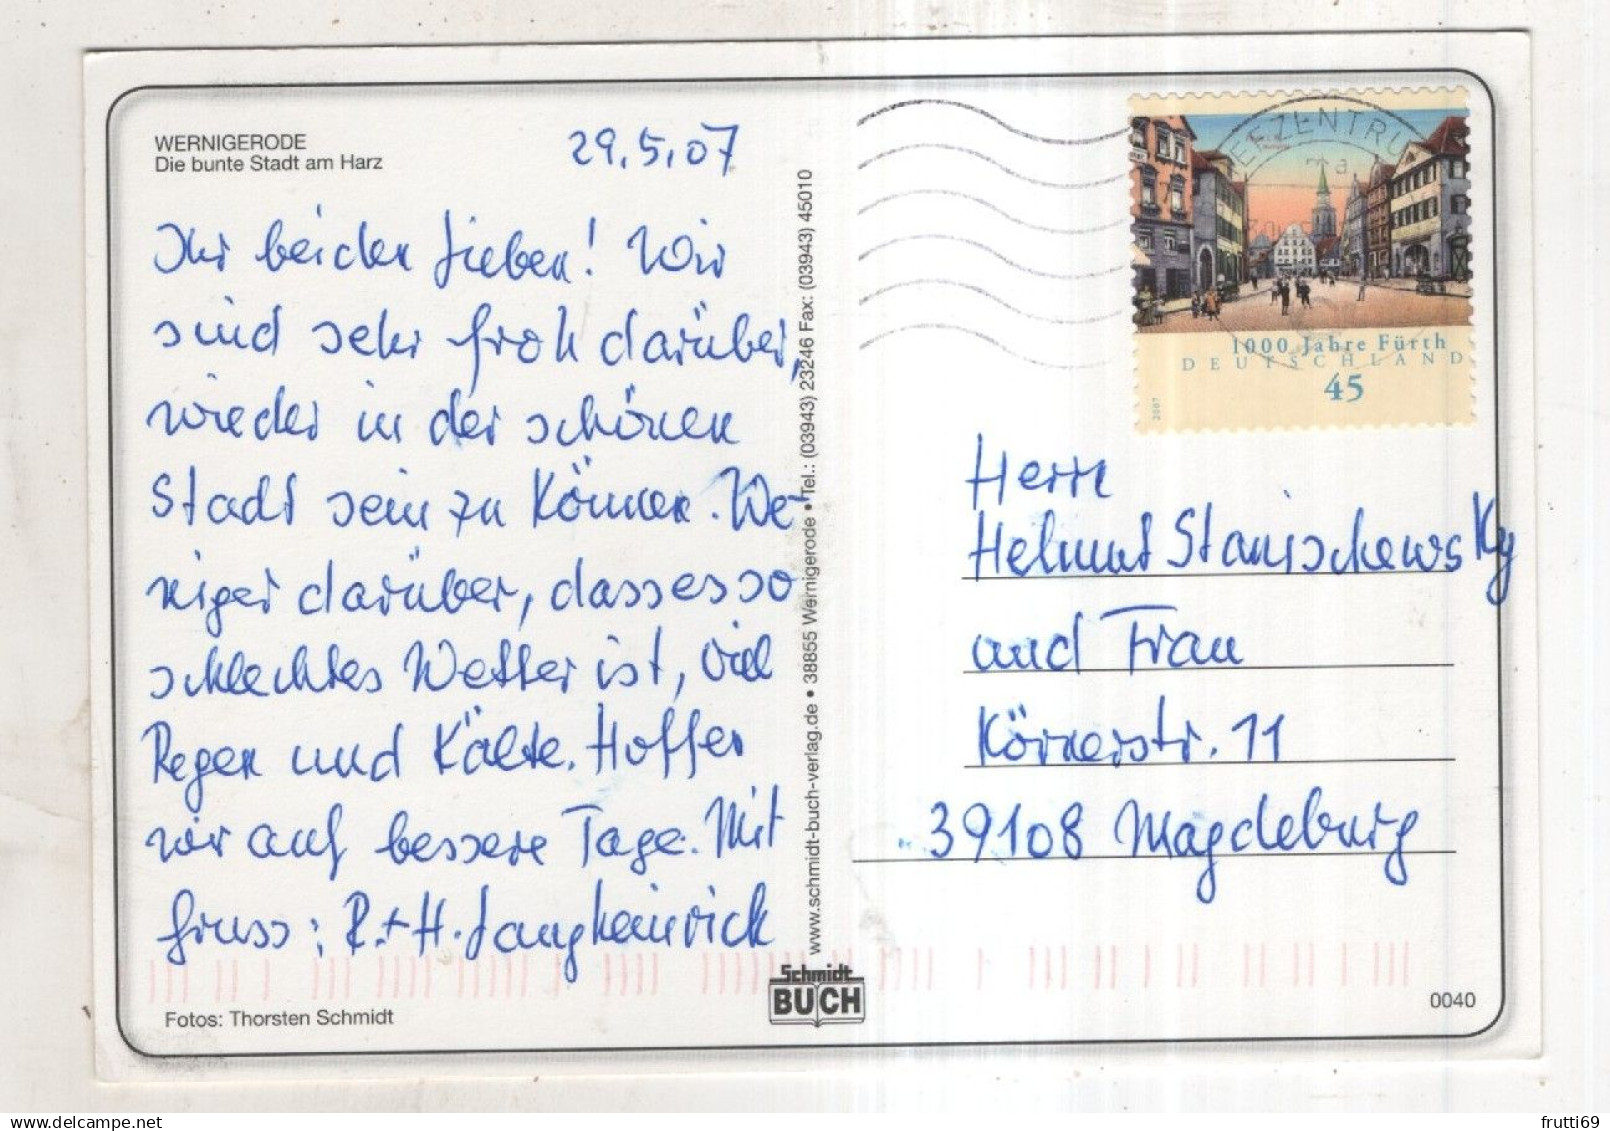 WERNIGERODE
Die bunte Stadt am Harz
29.5.07
Ihr beiden Lieben! Wir
sind sehr froh darüber,
wieder in der schönen
Stadt sein zu können. We-
niger darüber, dass es so
schlechtes Wetter ist, viel
Regen und Kälte. Hoffen
wir auf bessere Tage. Mit
Gruss: R.+H. Langheinrick
Fotos: Thorsten Schmidt
www.schmidt-buch-verlag.de • 38855 Wernigerode • Tel.: (03943) 23246 Fax: (03943) 45010
Schmidt
BUCH
1000 Jahre Fürth
DEUTSCHLAND
45
2007
Herrn
Helmut Stanischewsky
und Frau
Körnerstr. 11
39108 Magdeburg
0040
frutti69
www.delcampe.net